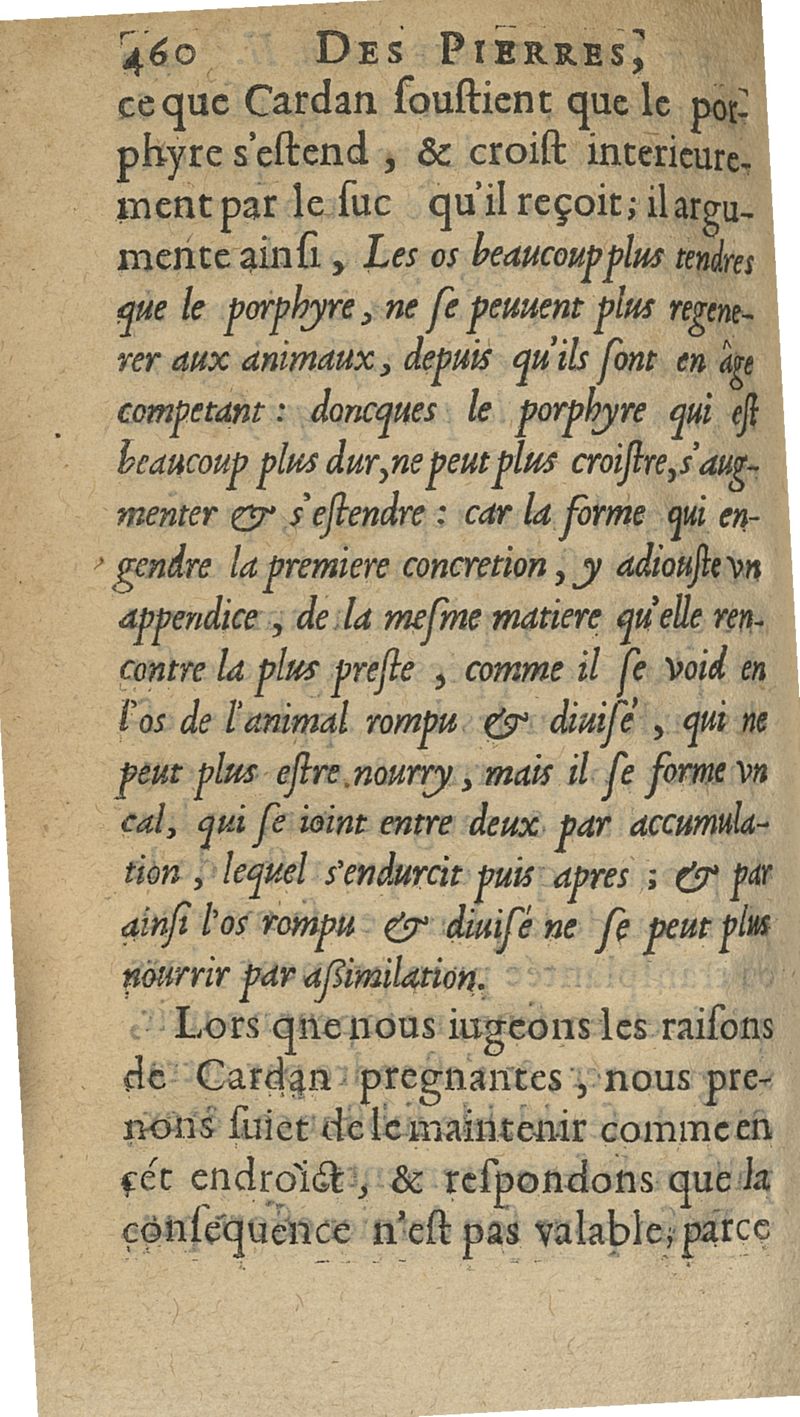 460 DES PIERRES,
ce que Cardan ſouſtient que le por-
phyre s'eſtend , & croiſt interieure-
ment par le ſuc qu'il reçoit ; il argu-
mente ainſi , Les os beaucoup plus tendres
que le porphyre , ne ſe peuuent plus regene-
rer aux animaux , depuis qu'ils ſont en âge
competant : doncques le porphyre qui eſt
beaucoup plus dur, ne peut plus croiſtre, s'aug-
menter & s'eſtendre : car la forme qui en-
gendre la premiere concretion , y adiouſte vn
appendice , de la meſme matiere qu'elle ren-
contre la plus preſte , comme il ſe void en
l'os de l'animal rompu & diuiſé , qui ne
peut plus eſtre nourry , mais il ſe forme vn
cal, qui ſe ioint entre deux par accumula-
tion , lequel s'endurcit puis apres ; & par
ainſi l'os rompu & diuiſé ne ſe peut plus
nourrir par aſſimilation.
Lors que nous iugeons les raiſons
de Cardan pregnantes , nous pre-
nons ſuiet de le maintenir comme en
cét endroict , & reſpondons que la
conſequence n'eſt pas valable, parce